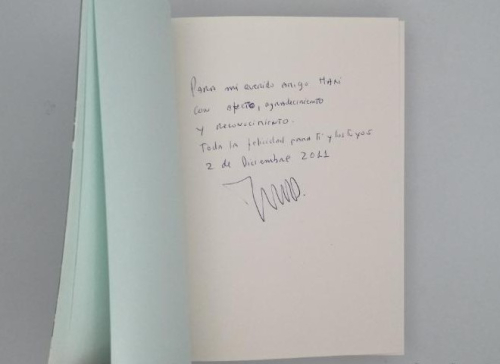 Para mi querido amigo Mani
con afecto, agradecimiento
y reconocimiento.
Toda la felicidad para ti y los tuyos
2 de Diciembre 2011